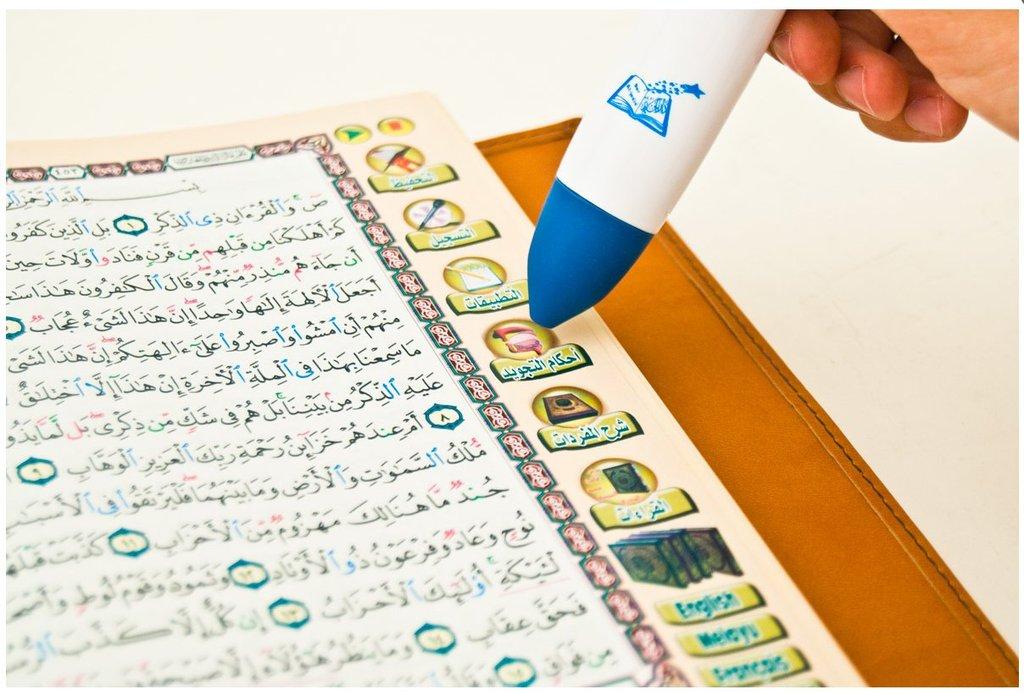 ٤٥٣
بِسْمِ ٱللَّهِ ٱلرَّحْمَٰنِ
صٓ وَٱلْقُرْءَانِ ذِى ٱلذِّكْرِ ١ بَلِ ٱلَّذِينَ كَفَرُو
كَمْ أَهْلَكْنَا مِن قَبْلِهِم مِّن قَرْنٍ فَنَادَوا۟ وَّلَاتَ حِينَ
أَن جَآءَهُم مُّنذِرٌ مِّنْهُمْ وَقَالَ ٱلْكَٰفِرُونَ هَٰذَا
أَجَعَلَ ٱلْءَالِهَةَ إِلَٰهًا وَٰحِدًا إِنَّ هَٰذَا لَشَىْءٌ عُجَابٌ
مِنْهُمْ أَنِ ٱمْشُوا۟ وَٱصْبِرُوا۟ عَلَىٰٓ ءَالِهَتِكُمْ إِنَّ هَٰذَا لَشَىْ
مَا سَمِعْنَا بِهَٰذَا فِى ٱلْمِلَّةِ ٱلْءَاخِرَةِ إِنْ هَٰذَآ إِلَّا ٱخْتِلَٰقٌ
عَلَيْهِ ٱلذِّكْرُ مِنۢ بَيْنِنَا بَلْ هُمْ فِى شَكٍّ مِّن ذِكْرِى بَل لَّمَّا يَذُو
٨ أَمْ عِندَهُمْ خَزَآئِنُ رَحْمَةِ رَبِّكَ ٱلْعَزِيزِ ٱلْوَهَّابِ ٩
مُّلْكُ ٱلسَّمَٰوَٰتِ وَٱلْأَرْضِ وَمَا بَيْنَهُمَا فَلْيَرْتَقُوا۟ فِى ٱلْأَسْبَٰ
جُندٌ مَّا هُنَالِكَ مَهْزُومٌ مِّنَ ٱلْأَحْزَابِ ١١ كَذَّبَتْ قَبْلَهُ
نُوحٍ وَعَادٌ وَفِرْعَوْنُ ذُو ٱلْأَوْتَادِ ١٢ وَثَمُودُ وَقَوْمُ لُوطٍ وَأَصْحَ
لْـَٔيْكَةِ أُو۟لَٰٓئِكَ ٱلْأَحْزَابُ ١٣ إِن كُلٌّ إِلَّا كَذَّبَ ٱلرُّسُ
فَحَقَّ عِقَابِ ١٤ وَمَا يَنظُرُ هَٰٓؤُلَآءِ إِلَّا صَيْحَةً
مِن فَوَاقٍ
التحفيظ
التسجيل
التطبيقات
أحكام التجويد
شرح المفردات
القراءات
English
Melayu
Français